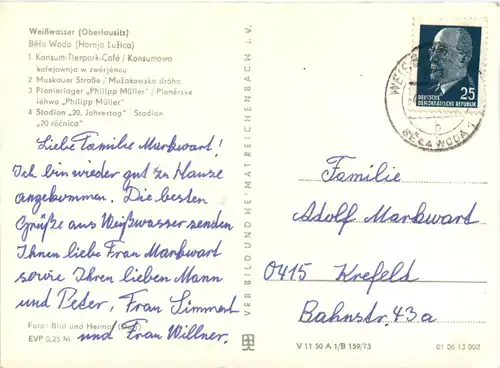 Weißwasser (Oberlausitz)
Běła Woda (Hornja Łužica)
1 Konsum-Tierpark-Café / Konsumowa
kofejownja w zwěrjencu
2 Muskauer Straße / Mužakowska dróha
3 Pionierlager „Philipp Müller" / Pioněrske
lěhwo „Philipp Müller"
4 Stadion „20. Jahrestag" / Stadion
„20 róčnica"
Liebe Familie Markwart!
Ich bin wieder gut zu Hause
angekommen. Die besten
Grüße aus Weißwasser senden
Ihnen liebe Frau Markwart
sowie Ihren lieben Mann
und Peter, Frau Simmert
und Frau Willner.
Foto: Bild und Heimat
EVP 0,25 M
VEB BILD UND HEIMAT REICHENBACH i. V.
25
DEUTSCHE
DEMOKRATISCHE REPUBLIK
BĚŁA WODA
b
Familie
Adolf Markwart
0415 Krefeld
Bahnstr. 43a
V 11 50 A 1/B 159/73
01 06 13 002